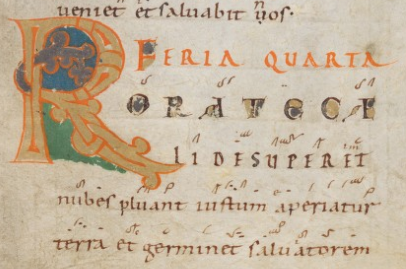 ueniet et saluabit nos·
FERIA QUARTA
RORATE CE
LI DESUPER ET
nubes pluant iustum aperiatur
terra et germinet saluatorem